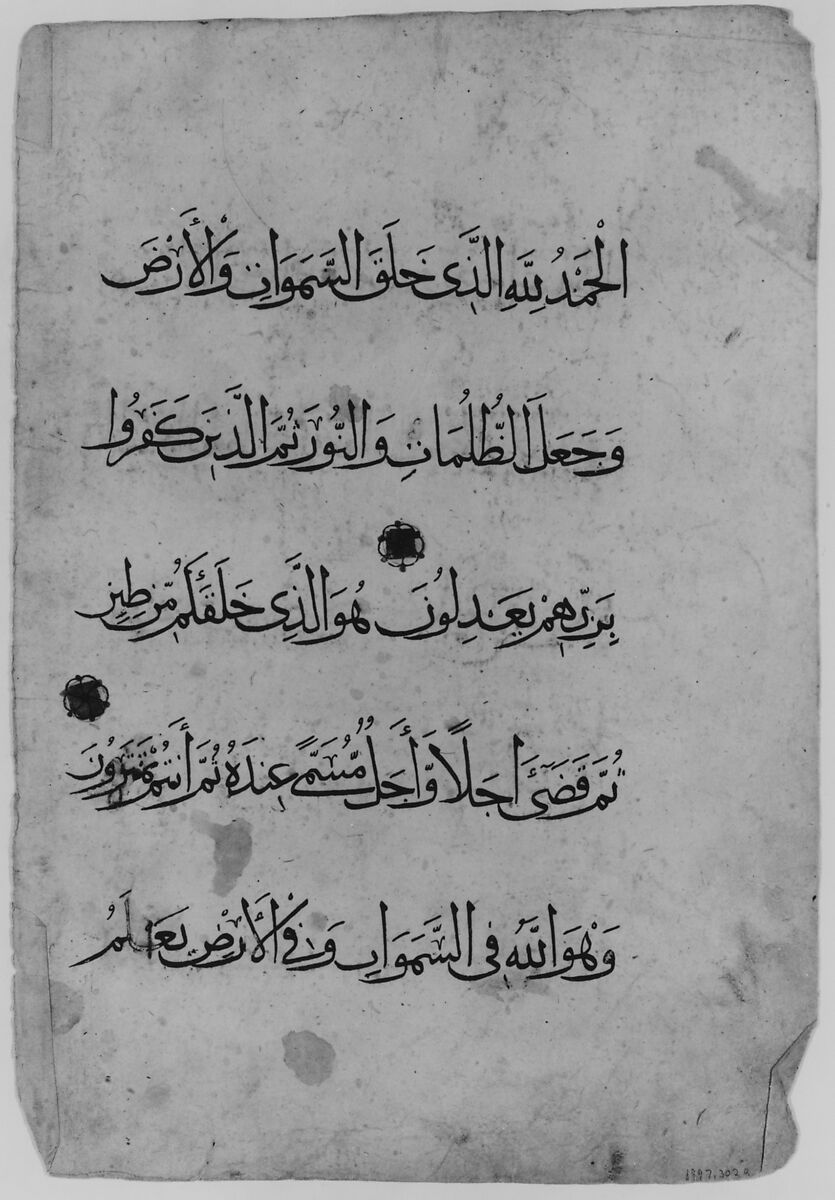 الْحَمْدُ لِلَّهِ الَّذِى خَلَقَ السَّمَوَاتِ وَالْأَرْضَ
وَجَعَلَ الظُّلُمَاتِ وَالنُّورَ ثُمَّ الَّذِينَ كَفَرُوا
بِرَبِّهِمْ يَعْدِلُونَ هُوَ الَّذِى خَلَقَكُمْ مِّن طِينٍ
ثُمَّ قَضَىٓ اَجَلًا وَّأَجَلٌ مُّسَمًّى عِندَهُ ثُمَّ أَنتُمْ تَمْتَرُونَ
وَهُوَ اللَّهُ فِى السَّمَوَاتِ وَفِى الْأَرْضِ يَعْلَمُ
1997.302a